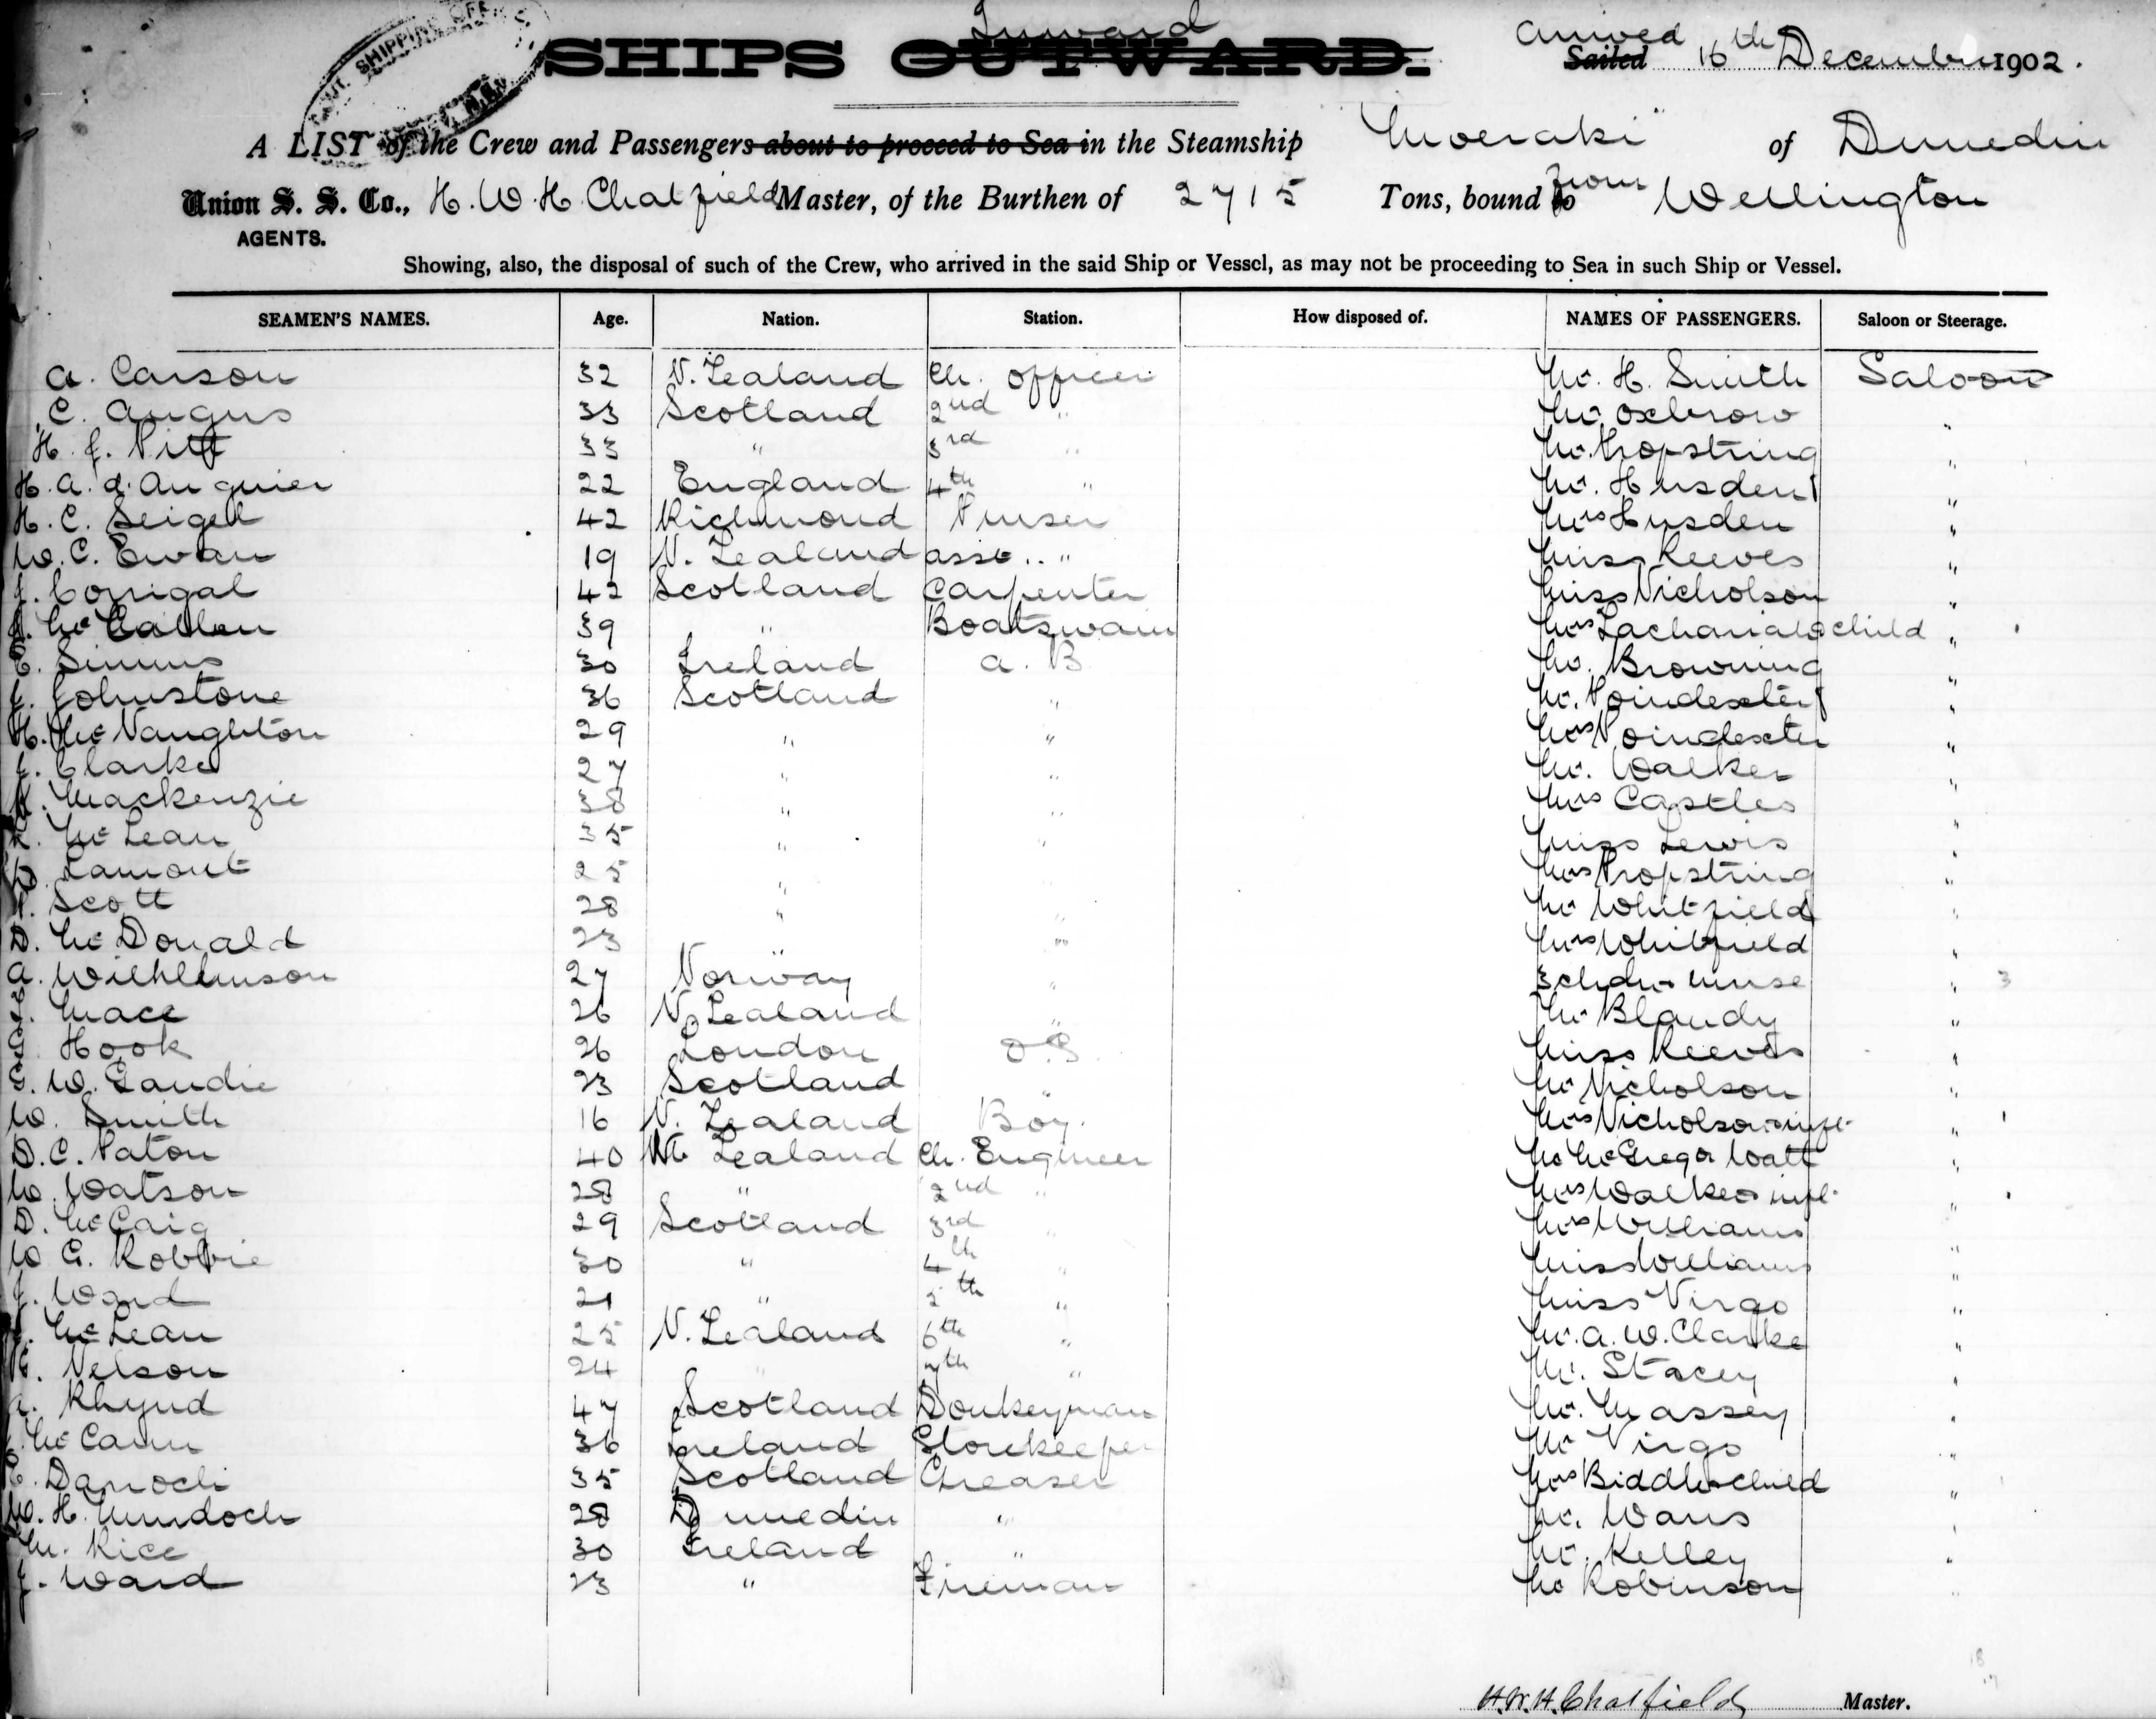 Inward
SHIPS OUTWARD.
Arrived
Sailed 16th December 1902.
A LIST of the Crew and Passengers about to proceed to Sea in the Steamship "Moeraki" of Dunedin
Union S. S. Co., H. W. H. Chatfield Master, of the Burthen of 2715 Tons, bound to from Wellington
AGENTS.
Showing, also, the disposal of such of the Crew, who arrived in the said Ship or Vessel, as may not be proceeding to Sea in such Ship or Vessel.
SEAMEN'S NAMES. Age. Nation. Station. How disposed of. NAMES OF PASSENGERS. Saloon or Steerage.
A. Carson 32 N. Zealand Ch. Officer Mr. H. Smith Saloon
C. Angus 33 Scotland 2nd " Mr. Oxbrow "
H. J. Pitt 33 " 3rd " Mr. Propstring "
H. A. d'Anquier 22 England 4th " Mr. Husden "
H. C. Seigel 42 Richmond Purser Mrs Husden "
W. C. Ewan 19 N. Zealand asst. " Miss Reeves "
J. Corrigal 42 Scotland Carpenter Miss Nicholson "
Mc Callen 39 " Boatswain Mrs Zachariah & child "
Simms 30 Ireland A. B. Mr. Browning "
J. Johnstone 36 Scotland " Mr. Poindexter "
H. McNaughton 29 " " Mrs Poindexter "
J. Clarke 27 " " Mr. Walker "
Mackenzie 38 " " Mrs Castles "
McLean 35 " " Miss Lewis "
Lamont 25 " Mrs Propstring "
Scott 28 " " Mr Whitfield "
D. McDonald 23 " " Mrs Whitfield "
A. Wilhlmson 27 Norway " 3 chdn & nurse " 3
Mace 26 N. Zealand " Mr Blandy "
Hook 26 London O.S. Miss Reeves "
G. W. Gaudie 23 Scotland " Mr Nicholson "
W. Smith 16 N. Zealand Boy. Mrs Nicholson & inft "
D. C. Paton 40 N. Zealand Ch. Engineer Mr McGregor Watt "
W. Watson 28 " 2nd " Mrs Walker & inft "
D. McCaig 29 Scotland 3rd " Mrs Williams "
W G. Robbie 30 " 4th " Miss Williams "
J. Ward 21 " 5th " Miss Virgo "
McLean 25 N. Zealand 6th " Mr. A. W. Clarke "
Nelson 24 " 7th " Mr. Stacey "
A. Rhynd 47 Scotland Donkeyman Mr. Massey "
McCann 36 Ireland Storekeeper Mr Virgo "
Darroch 35 Scotland Greaser Mrs Biddle & child "
W. H. Murdoch 28 Dunedin " Mr. Wans "
M. Rice 30 Ireland " Mr. Kelley "
J. Ward 23 " Fireman Mr Robinson "
H. W. H. Chatfield Master.